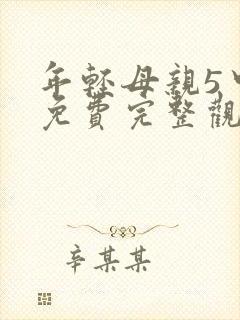 年轻母親5
免費完整觀
辛某某